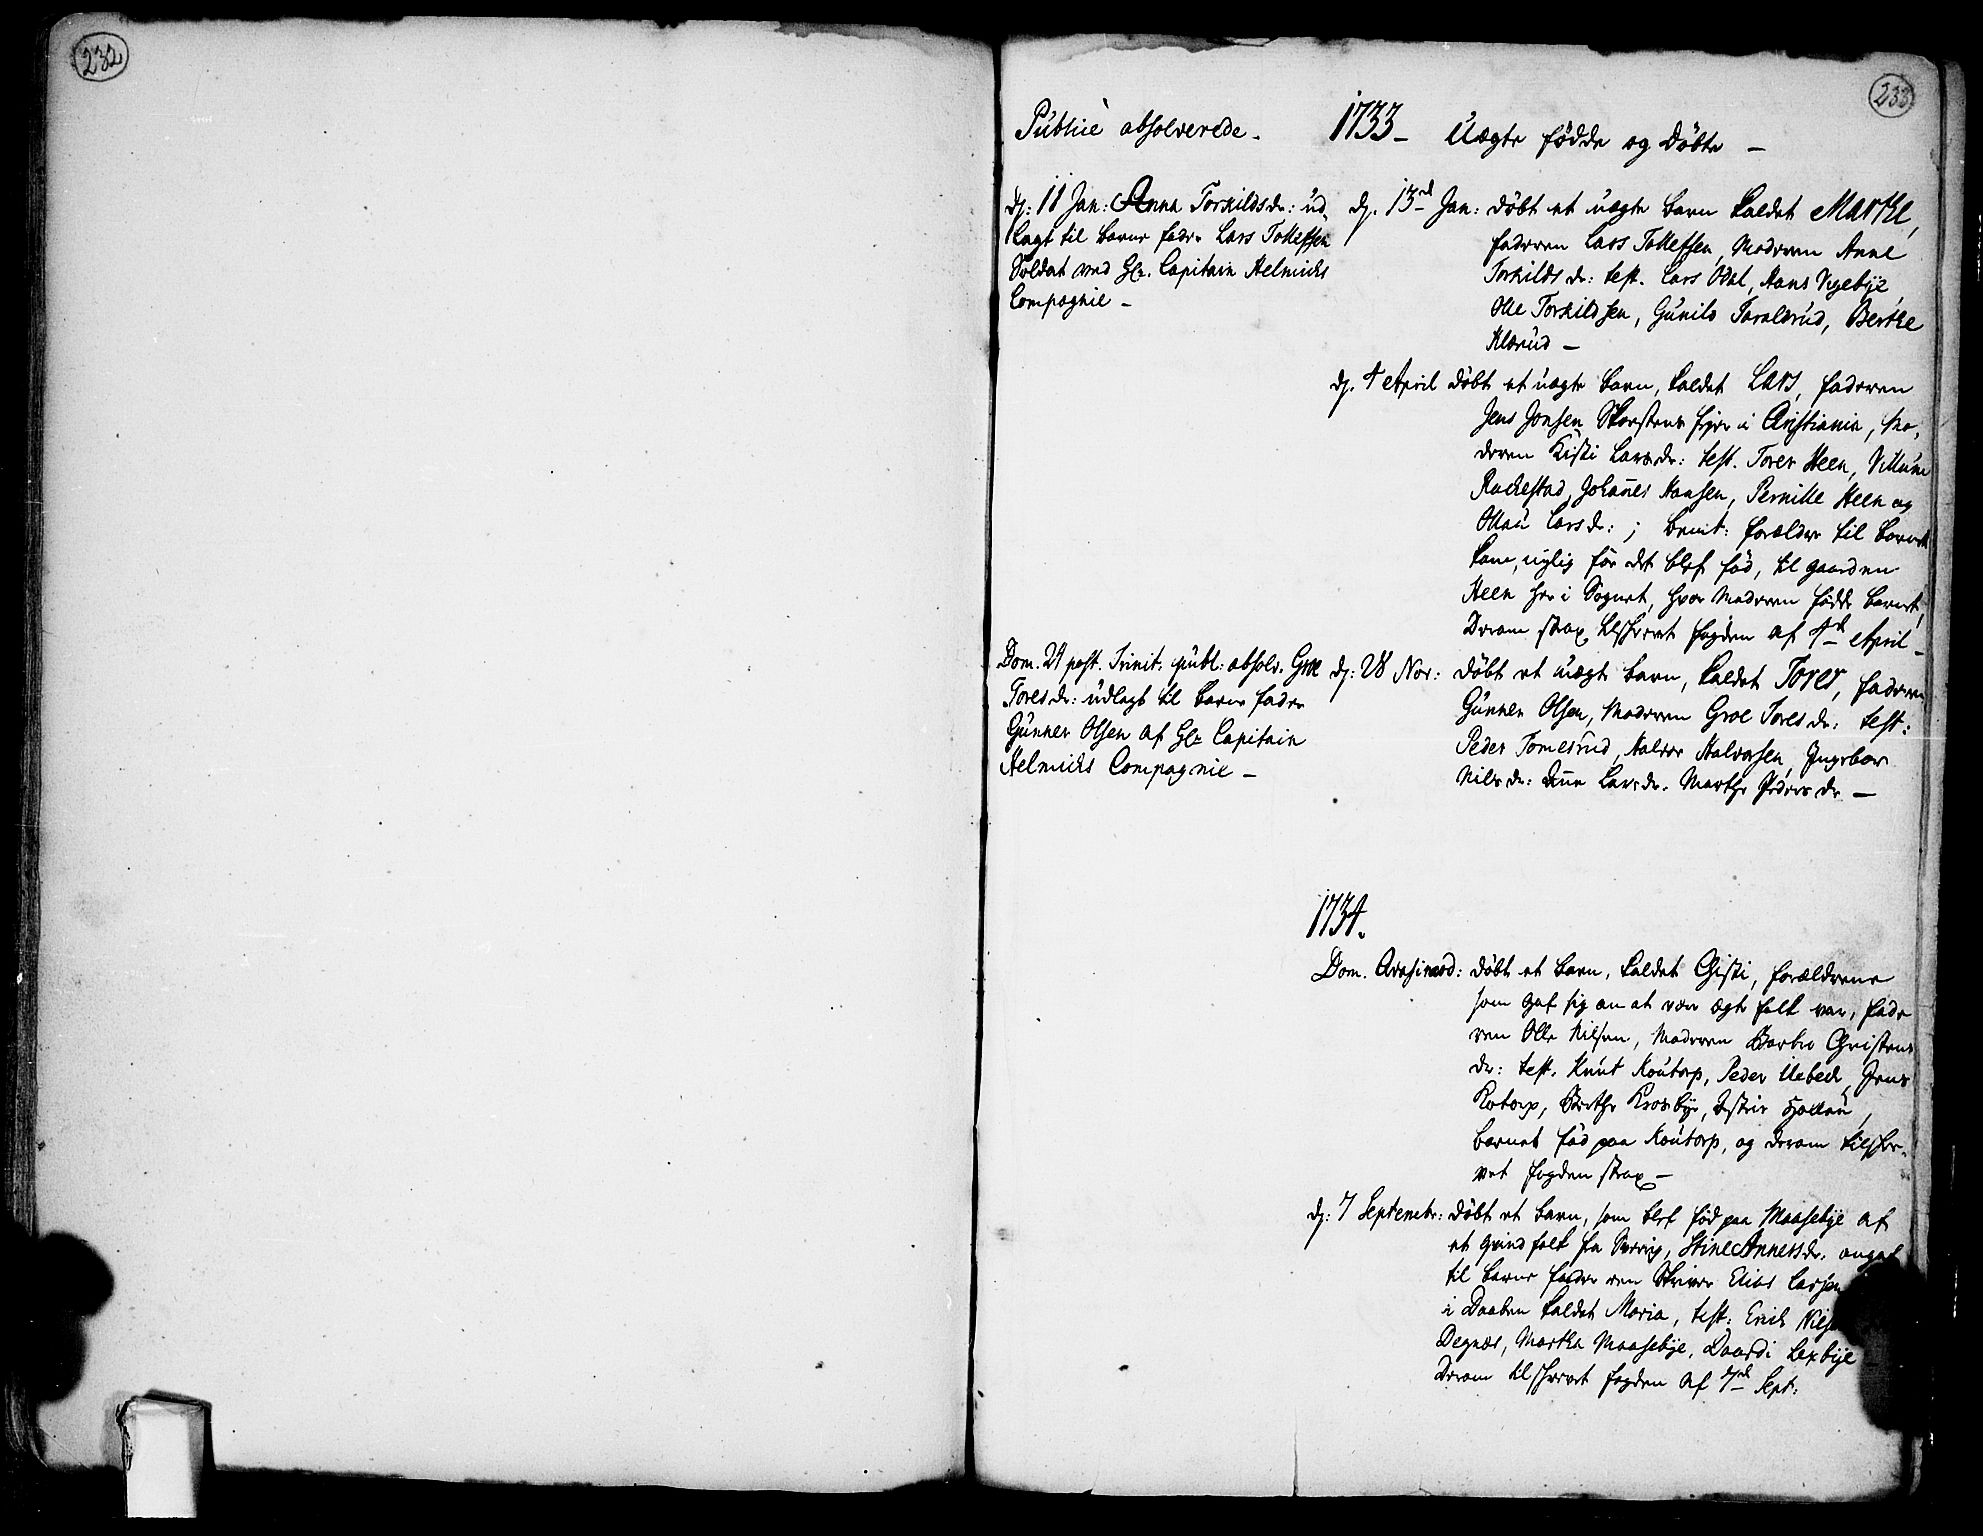 232
233
Publicè absolverede.
1733
Uægte fødde og Døbte
dj: 11 Jan: Anna Torkildsdr: ud-
lagt til barne fader Lars Tollefsen
Soldat ved Hr. Capitain Helmichs
Compagnie
dj. 13d Jan: døbt et uægte barn kaldet Marthe,
faderen Lars Tollefsen, Moderen Anne
Torkilds dr: test. Lars Odal, Hans
Olle Torkildsen, Gunild Taraldrud, Berthe
Klarud
dj. 4 April døbt et uægte barn, kaldet Lars, faderen
Jens Jonsen Skorstens fejer i Christiania, Mo-
deren Kisti Larsdr: test. Tover Heen, Villum
Rackestad, Johañes Hansen, Pernille Heen og
Ollau Larsdr: ; bemt: forældre til barnet
kom, nylig før det blef fød, til gaarden
Heen her i Sognet, hvor Moderen fødde barnet,
Derom strax tilskrevet fogden af 4d April
Dom. 24 post. Trinit: publ: absolv. Groe
Toresdr: udlagt til barne fader
Gunner Olsen af Hr Capitain
Helmichs Compagnie
dj: 28 Nov: døbt et uægte barn, kaldet Tover, faderen
Gunner Olsen, Moderen Groe Toresdr: test:
Peder Tomesrud, Halvor Halvorsen, Ingebor
Nilsdr: Añe Larsdr. Marthe Pedersdr
1734.
Dom. døbt et barn, kaldet Chisti, forældrene
som gaf sig an at være ægte folk var, fade
ren Olle Nilsen, Moderen Barbro Christens
dr: test. Knut Koutorp, Peder Uebeck, Jens
Kotorp, Berthe Krosbye,
barnet fød paa Koutorp, og derom tilskre-
vet fogden strax
dj: 7 Septembr: døbt et barn, som blef fød paa Maasebye af
et qvindfolk fra Sverig, Stine Annersdr. angaf
til barne fader een Skriver Elias Larsen
i Daaben kaldet Maria, test: Erich
Degnæs, Martha Maasebye, Daardi Lexbye
Derom tilskrevet fogden af 7d Sept: